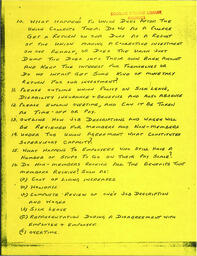 10. WHAT HAPPENS TO UNION DUES AFTER THE
UNION COLLECTS THEM. DO WE AS A GROUP
GET A REVIEW OF OUR DUES AS A RESULT
OF THE UNION MAKING A COLLECTIVE INVESTMENT
ON OUR BEHALF, OR DOES THE UNION JUST
DUMP THE DUES INTO THEIR OWN BANK ACCOUNT
AND KEEP THE INTEREST FOR THEMSELVES OR
DO WE INFACT GET SOME KIND OF MONETARY
RETURN FOR OUR INVESTMENT?
11. PLEASE OUTLINE UNION POLICY ON SICK LEAVE,
DISABILITY INSURANCE & BENEFITS AND ALSO ABSENCE
12. PLEASE EXPLAIN OVERTIME, AND CAN IT BE TAKEN
AS TIME-OFF OR PAY.
13. OUTLINE HOW JOB DESCRIPTIONS AND WAGES WILL
BE REVIEWED FOR MEMBERS AND NON-MEMBERS
14. UNDER THE UNION AGREEMENT WHAT CONSTITUTES
SUPERVISORS CAPACITY?
15. WHAT HAPPENS TO EMPLOYEES WHO STILL HAVE A
NUMBER OF STEPS TO GO ON THEIR PAY SCALE?
16. DO NON-MEMBERS RECEIVE ALL THE BENEFITS THAT
MEMBERS RECEIVE? SUCH AS:
(A) COST OF LIVING INCREASES
(B) HOLIDAYS
(C) COMPLETE REVIEW OF ONE'S JOB DESCRIPTION
AND WAGES
(D) SICK LEAVE
(E) REPRESENTATION DURING A DISAGREEMENT WITH
EMPLOYER & EMPLOYEE
(F) OVERTIME